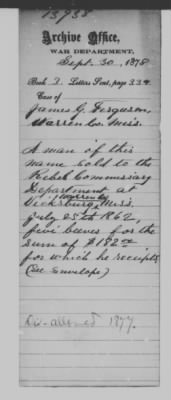 13938
Archive Office,
WAR DEPARTMENT,
Sept. 30, 1878
Book 2. Letters Sent, page 334
Case of
James G. Ferguson,
Warren Co. Miss.
A man of this
name sold to the
Rebel Commissary
Department at
Warren Co.
Vicksburg, Miss.
July 25th 1862,
five beeves for the
sum of $182.00
for which he receipts
(See Envelope)
Dis-allowed 1877.